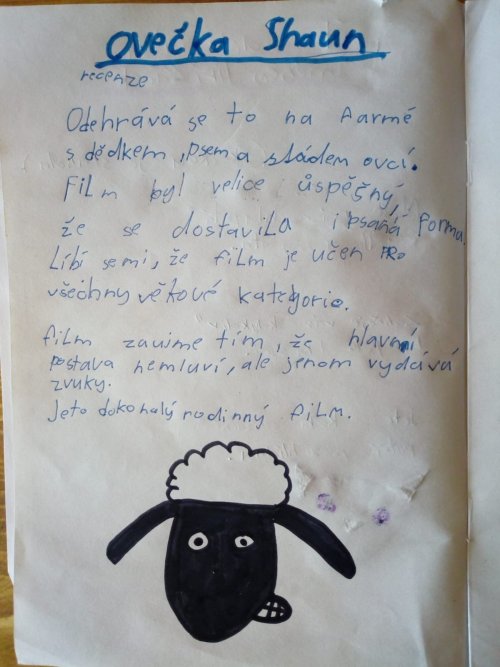 Ovečka Shaun
recenze
Odehrává se to na farmě
s dědkem, psem a stádem ovcí.
Film byl velice úspěšný,
že se dostavila i psaná forma.
Líbí se mi, že film je učen PRO
všechny věkové kategorie.
film zaujme tím, že hlavní
postava nemluví, ale jenom vydává
zvuky.
Jeto dokonalý rodinný film.